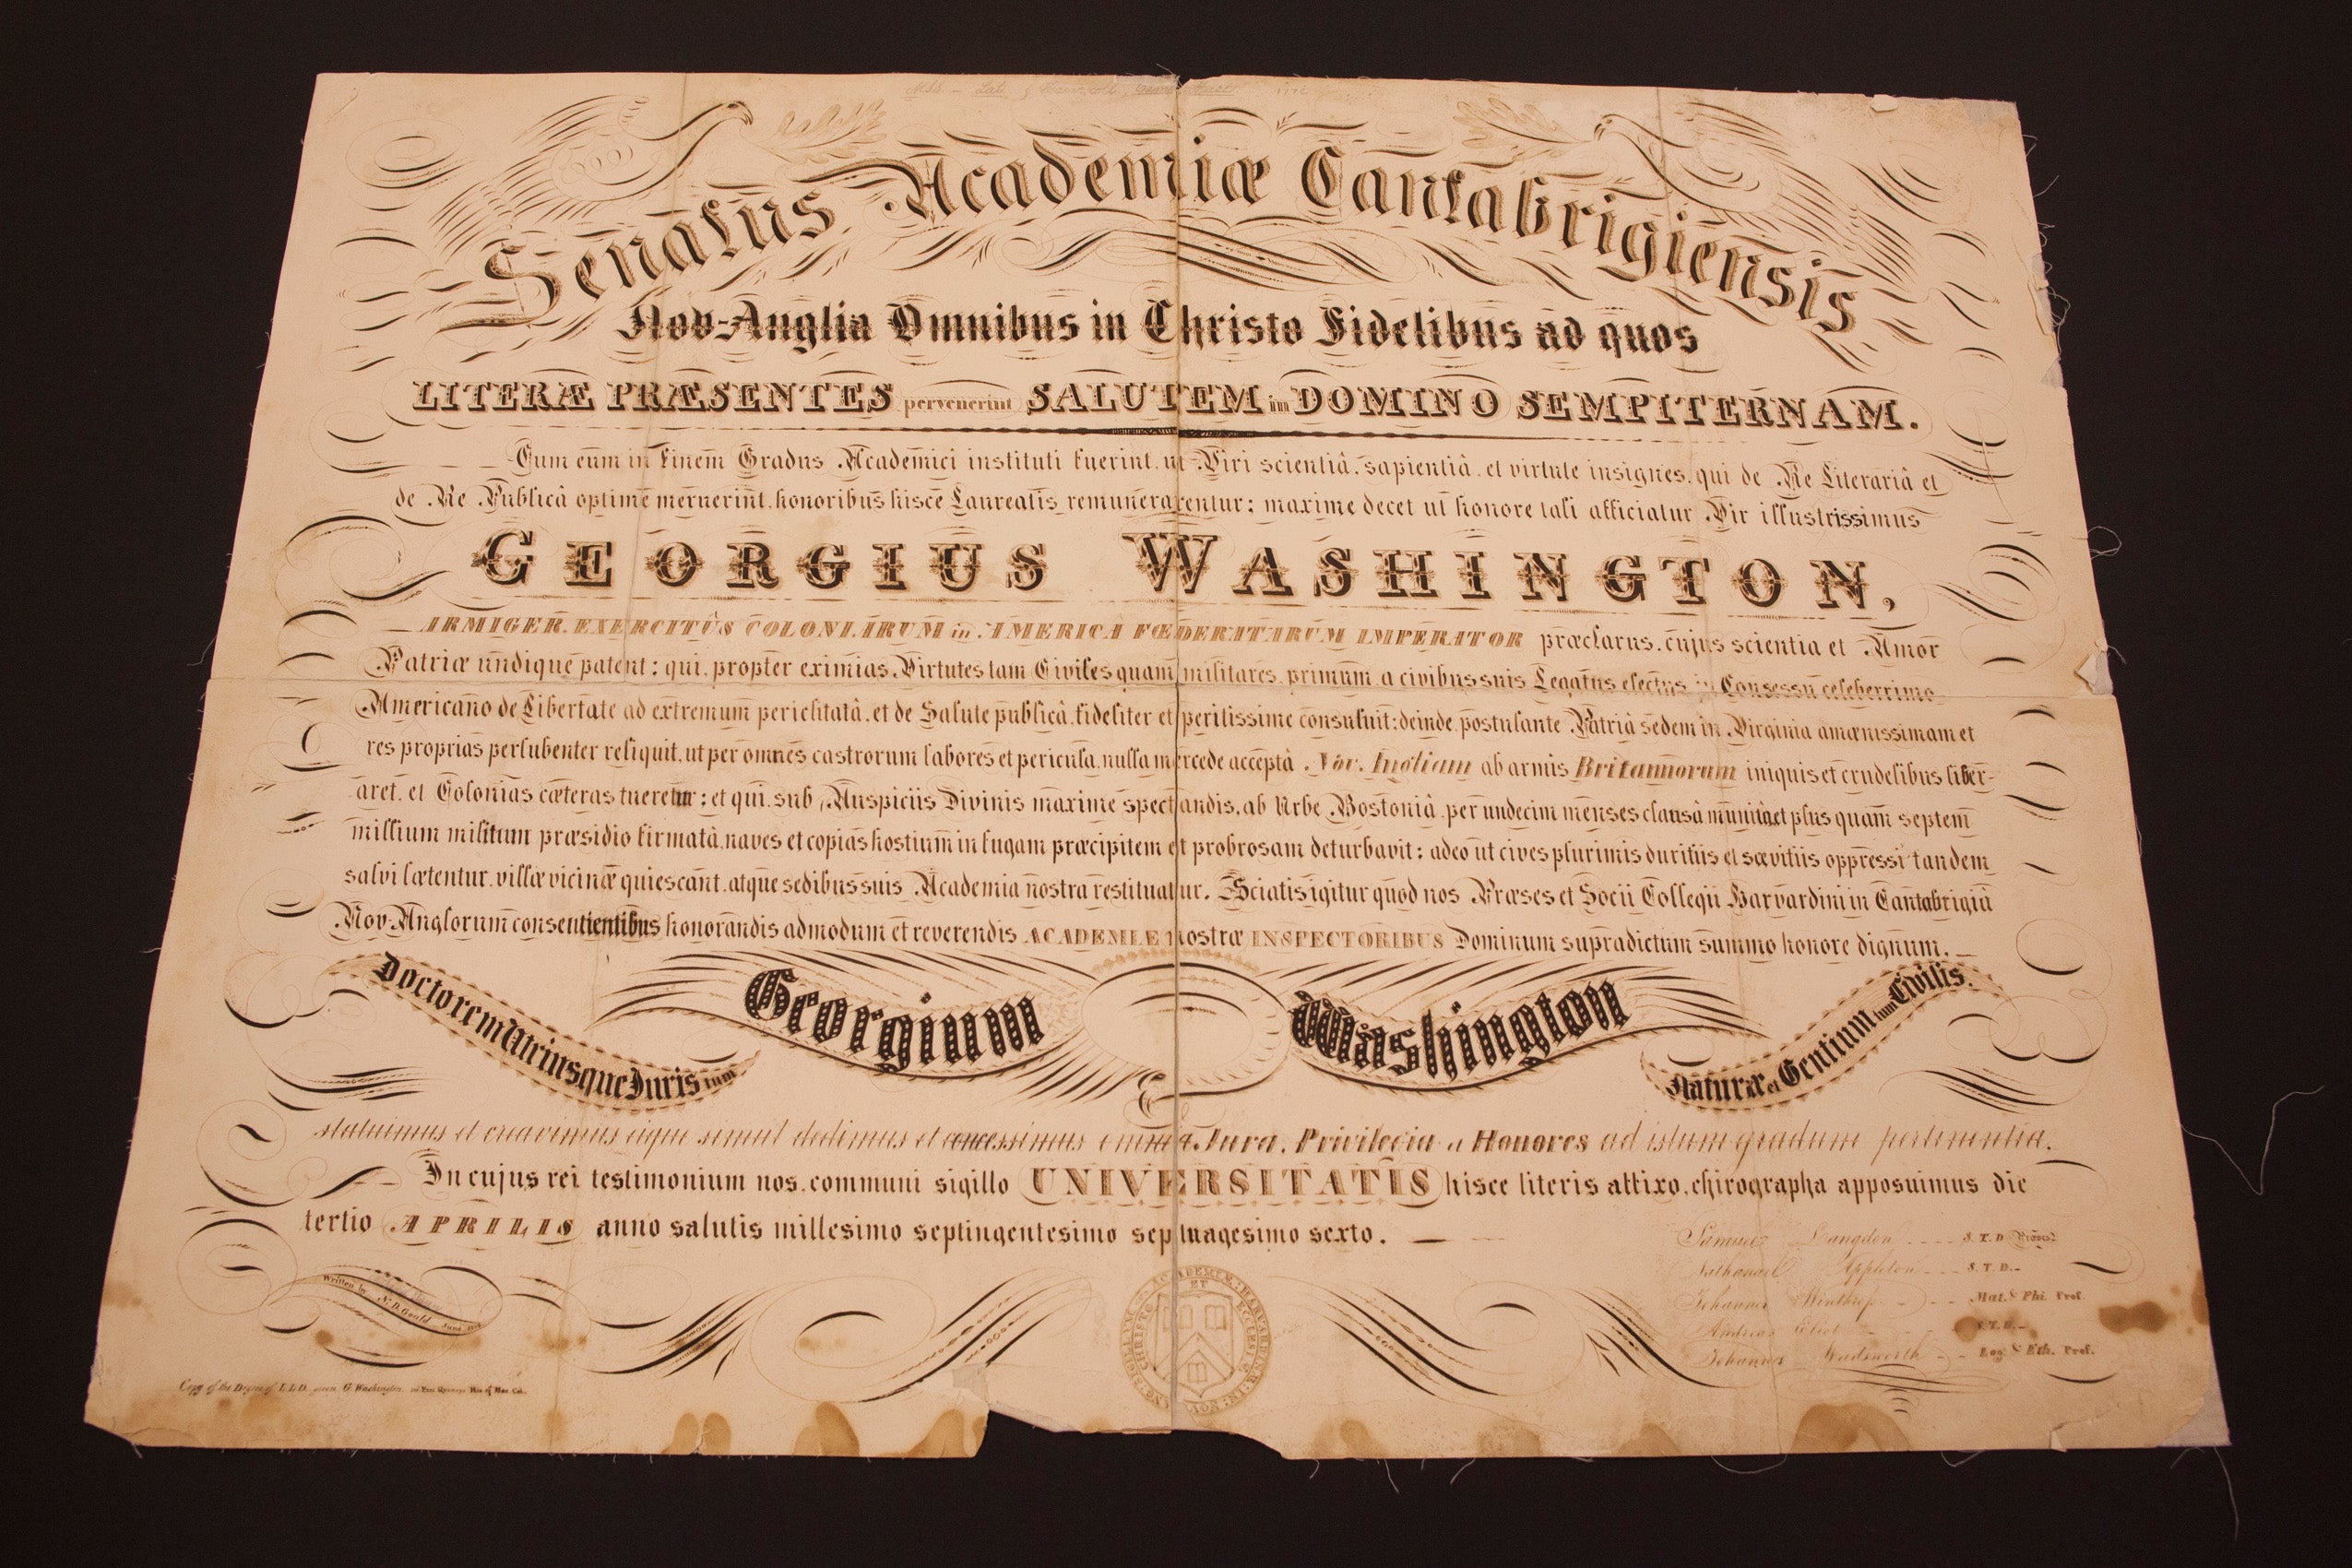 Senatus Academiæ Cantabrigiensis
Nov-Anglia Omnibus in Christo Fidelibus ad quos
LITERÆ PRÆSENTES pervenerint SALUTEM in DOMINO SEMPITERNAM.
Cum eum in finem Gradus Academici instituti fuerint, ut Viri scientiâ, sapientiâ, et virtute insignes, qui de Re Literariâ et
de Re Publicâ optime meruerint, honoribus hisce Laureatis remunerarentur; maxime decet ut honore tali afficiatur Vir illustrissimus
GEORGIUS WASHINGTON,
ARMIGER, EXERCITÛS COLONIARUM in AMERICA FŒDERATARUM IMPERATOR præclarus, cujus scientia et Amor
Patriæ undique patent; qui, propter eximias Virtutes tam Civiles quam militares, primum a civibus suis Legatus electus in Consessu celeberrimo
Americano de Libertate ad extremum periclitatâ, et de Salute publicâ, fideliter et peritissime consuluit; deinde, postulante Patriâ sedem in Virginia amœnissimam et
res proprias perlubenter reliquit, ut per omnes castrorum labores et pericula, nulla mercede acceptâ Nov. Angliam ab armis Britannorum iniquis et crudelibus liber-
aret, et Colonias cæteras tueretur; et qui, sub Auspiciis Divinis maxime spectandis, ab Urbe Bostoniâ per undecim menses clausâ munitâ, et plus quam septem
millium militum præsidio firmatâ, naves et copias hostium in fugam præcipitem et probrosam deturbavit; adeo ut cives plurimis duritiis et sævitiis oppressi tandem
salvi lætentur, villæ vicinæ quiescant, atque sedibus suis Academia nostra restituatur. Sciatis igitur quod nos Præses et Socii Collegii Harvardini in Cantabrigiâ
Nov-Anglorum consentientibus honorandis admodum et reverendis ACADEMIÆ nostræ INSPECTORIBUS Dominum supradictum summo honore dignum,
Doctorem Utriusque Juris tum Georgium Washington Naturæ et Gentium tum Civilis.
statuimus et creavimus eique simul dedimus et concessimus omnia Jura, Privilegia et Honores ad istum gradum pertinentia.
In cujus rei testimonium nos, communi sigillo UNIVERSITATIS hisce literis affixo, chirographa apposuimus die
tertio APRILIS anno salutis millesimo septingentesimo septuagesimo sexto.
Samuel Langdon S. T. D.
Nathanael Appleton S. T. D.
Johannes Winthrop Mat. & Phi. Prof.
Andreas Eliot S. T. D.
Johannes Wadsworth Log. & Eth. Prof.
Written by N. D. Gould
Copy of the Degree of L.L.D. given G. Washington